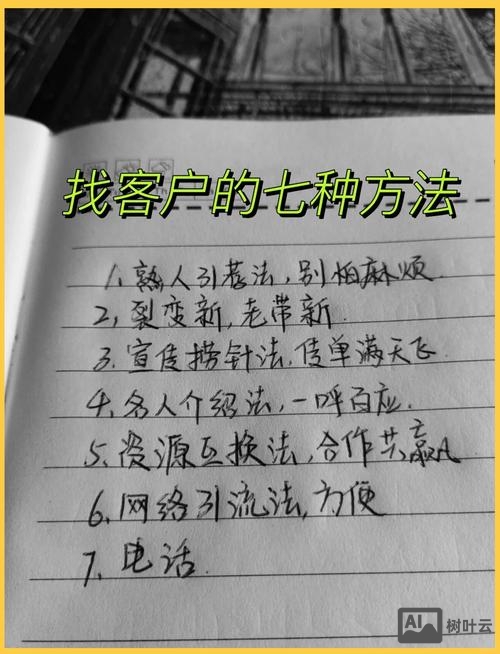 找客户的七种方法
1. 熟人引荐法,别怕麻烦.
2, 裂变新,老带新.
3. 宣传捞针法,传单满天飞.
4. 名人介绍法,一呼百应.
5. 资源互换法,合作共赢
6. 网络引流法,方便
7. 电话.
AI 树叶云